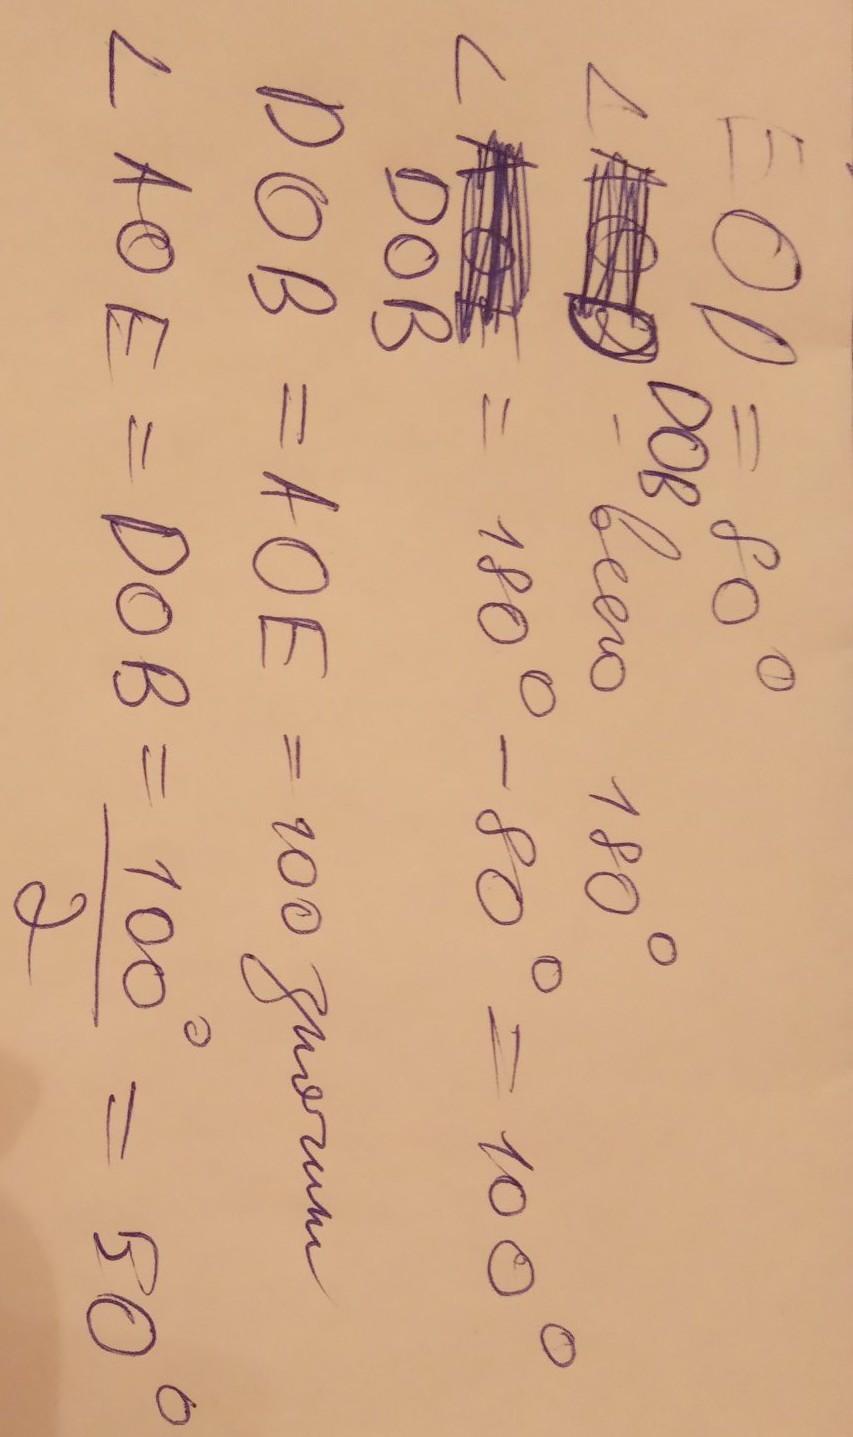 EOD = 80°
∠ DOB - всего 180°
∠ DOB = 180° - 80° = 100°
DOB = AOE = 100
∠ AOE = DOB = 100° / 2 = 50°